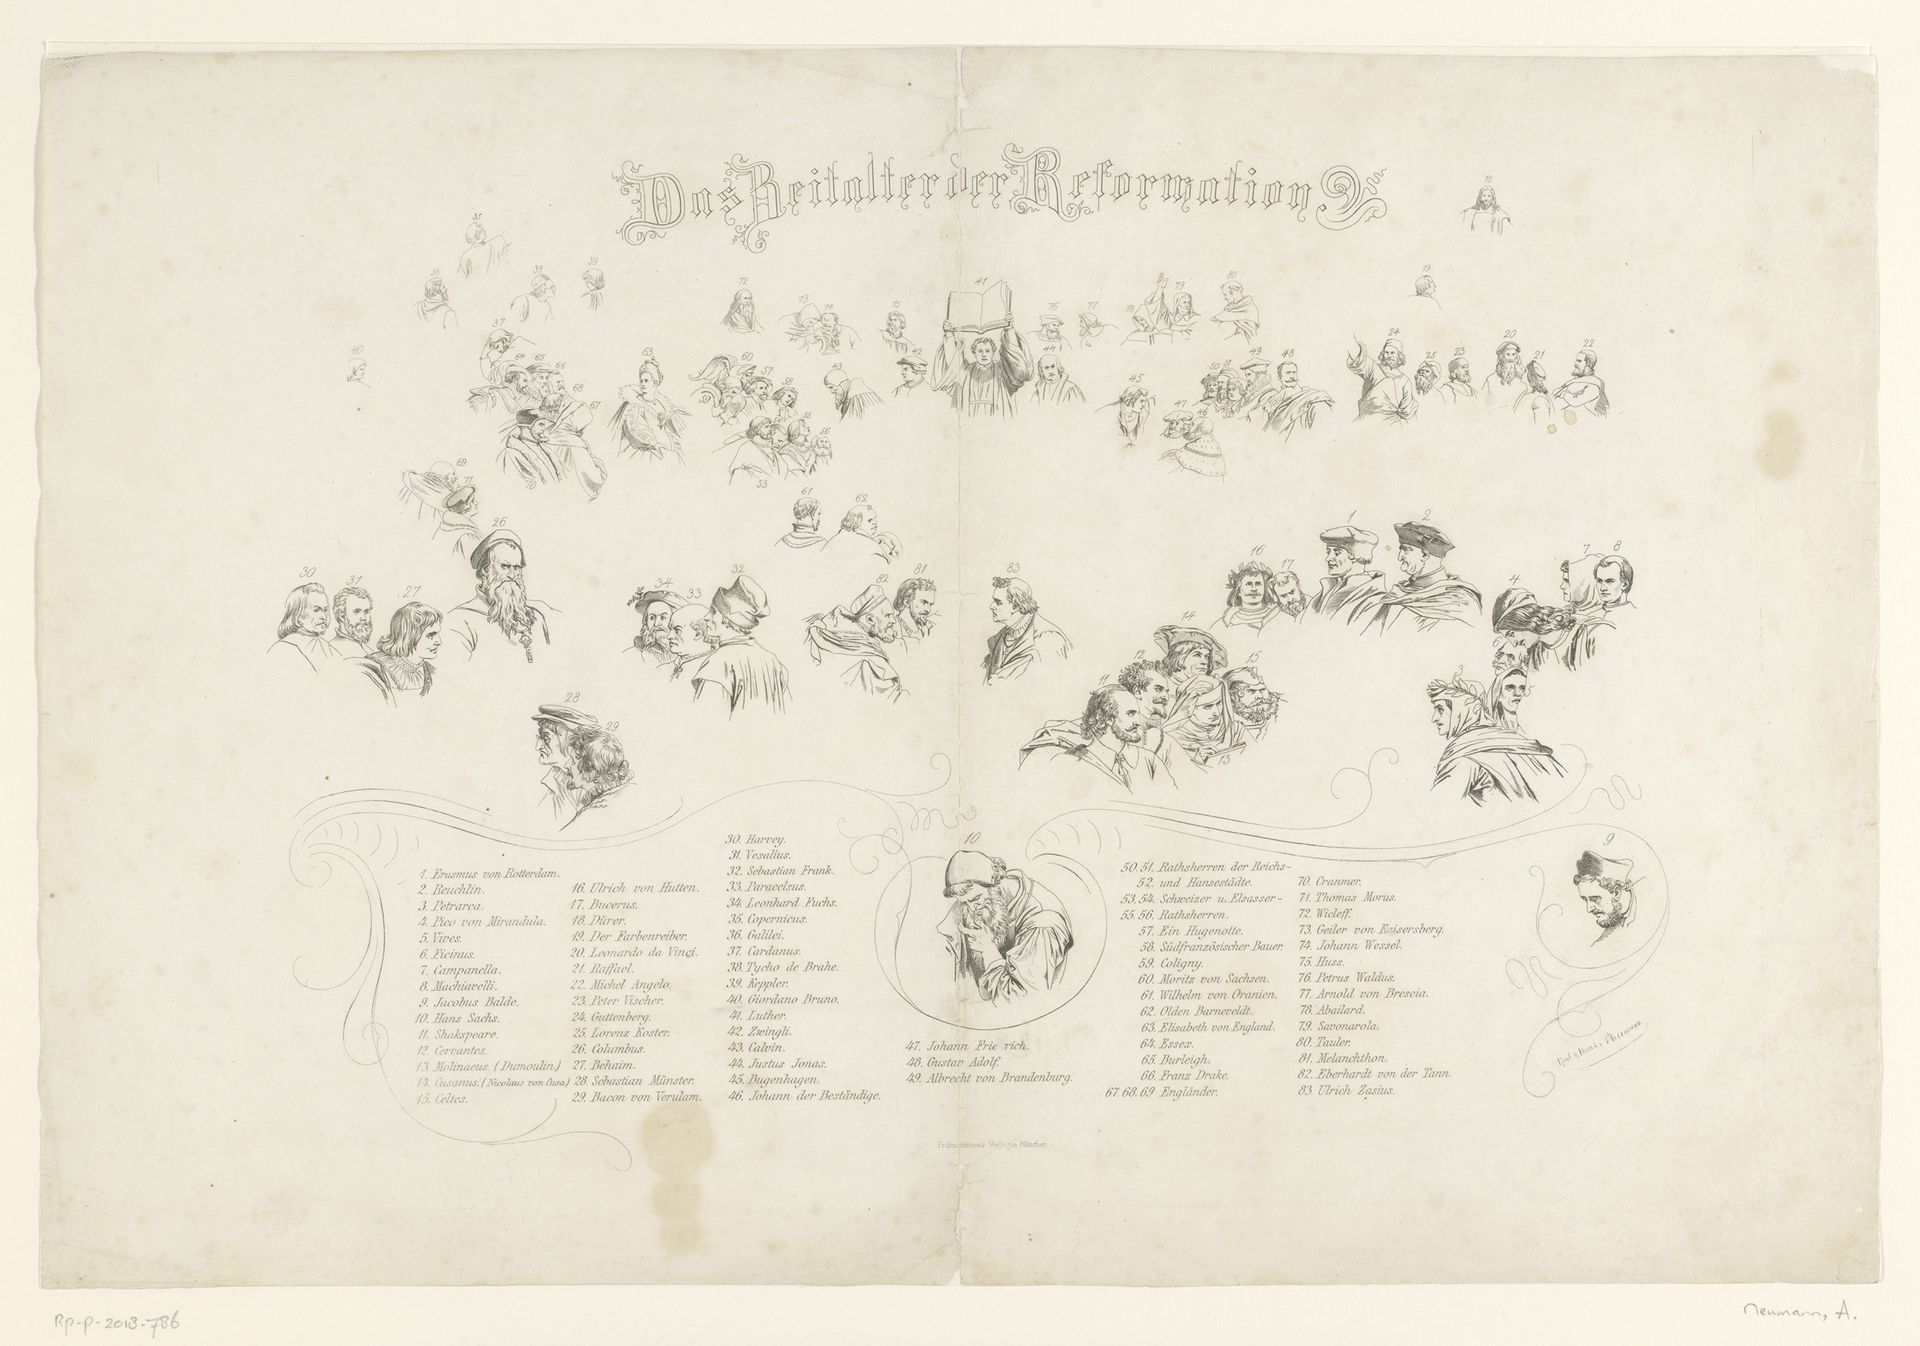 Das Zeitalter der Reformation
1. Erasmus von Rotterdam.
2. Reuchlin.
3. Petrarca.
4. Pico von Mirandula.
5. Vives.
6. Ficinus.
7. Campanella.
8. Machiavelli.
9. Jacobus Balde.
10. Hans Sachs.
11. Shakspeare.
12. Cervantes.
13. Molinaeus. (Dumoulin.)
14. Cusanus. (Nicolaus von Cusa)
15. Celtes.
16. Ulrich von Hutten.
17. Bucerus.
18. Dürer.
19. Der Farbenreiber.
20. Leonardo da Vinci.
21. Raffael.
22. Michel Angelo.
23. Peter Vischer.
24. Guttenberg.
25. Lorenz Koster.
26. Columbus.
27. Behaim.
28. Sebastian Münster.
29. Bacon von Verulam.
30. Harvey.
31. Vesalius.
32. Sebastian Frank.
33. Paracelsus.
34. Leonhard Fuchs.
35. Copernicus.
36. Galilei.
37. Cardanus.
38. Tycho de Brahe.
39. Keppler.
40. Giordano Bruno.
41. Luther.
42. Zwingli.
43. Calvin.
44. Justus Jonas.
45. Bugenhagen.
46. Johann der Beständige.
47. Johann Frie rich.
48. Gustav Adolf.
49. Albrecht von Brandenburg.
50. 51. Rathsherren der Reichs-
52. und Hansestädte.
53. 54. Schweizer u. Elsasser-
55. 56. Rathsherren.
57. Ein Hugenotte.
58. Südfranzösischer Bauer.
59. Coligny.
60. Moritz von Sachsen.
61. Wilhelm von Oranien.
62. Olden Barneveldt.
63. Elisabeth von England.
64. Essex.
65. Burleigh.
66. Franz Drake.
67. 68. 69 Engländer.
70. Cranmer.
71. Thomas Morus.
72. Wicleff.
73. Geiler von Keisersberg.
74. Johann Wessel.
75. Huss.
76. Petrus Waldus.
77. Arnold von Brescia.
78. Abailard.
79. Savonarola.
80. Tauler.
81. Melanchthon.
82. Eberhardt von der Tann.
83. Ulrich Zasius.
Fr. Bruckmann's Verlag in München
RP-P-2013-786
Neumann, A.